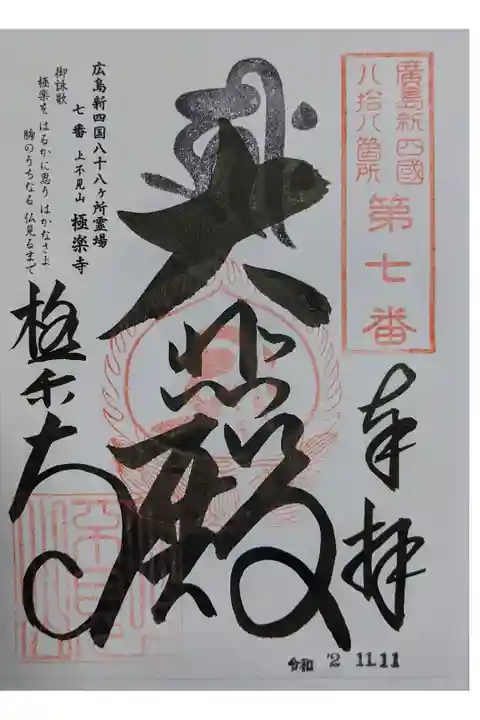 廣島新四國
八拾八箇所
第七番
奉拝
大悲殿
広島新四国八十八ヶ所霊場
七番 上不見山 極楽寺
御詠歌
極楽を はるかに思う はかなさよ
胸のうちなる 仏見るまで
極楽寺
令和 2 11.11